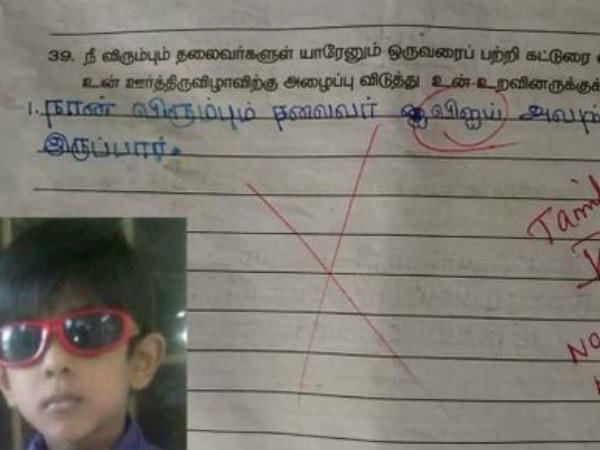 39. நீ விரும்பும் தலைவர்களுள் யாரேனும் ஒருவரைப் பற்றி கட்டுரை
உன் ஊர்த்திருவிழாவிற்கு அழைப்பு விடுத்து உன் உறவினருக்குக்
1. நான் விரும்பும் தலைவர் விஜய் அவர்
இருப்பார்.
Tamil
No